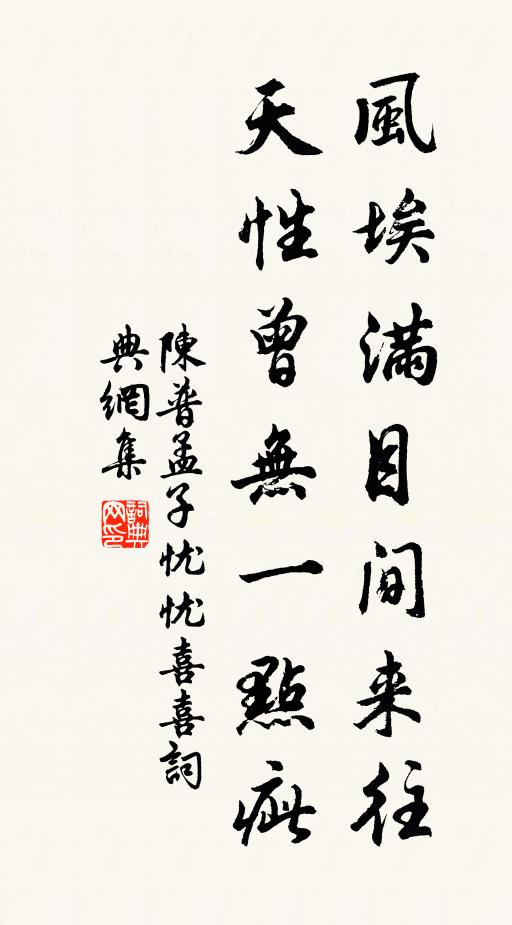 風埃滿目間来往
天性曾無一點疵
陳普孟子忧忧喜喜詞
典網集
詞典
网印